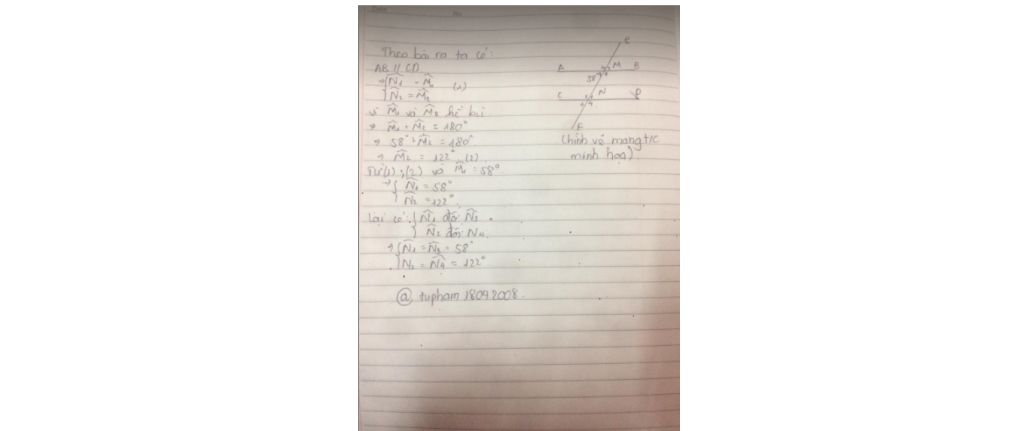 Theo bài ra ta có:
AB // CD
⇒ { N̂1 = M̂1
{ N̂2 = M̂2 (1)
Vì M̂1 và M̂2 kề bù
⇒ M̂1 + M̂2 = 180°
⇒ 58° + M̂2 = 180°
⇒ M̂2 = 122° (2)
Từ (1); (2) và M̂1 = 58°
⇒ { N̂1 = 58°
{ N̂2 = 122°
Lại có: { N̂1 đối N̂3
{ N̂2 đối N̂4
⇒ { N̂1 = N̂3 = 58°
{ N̂2 = N̂4 = 122°
@ tupham18042008.
A M B
58°
C N D
(hình vẽ mang t/c
minh họa)